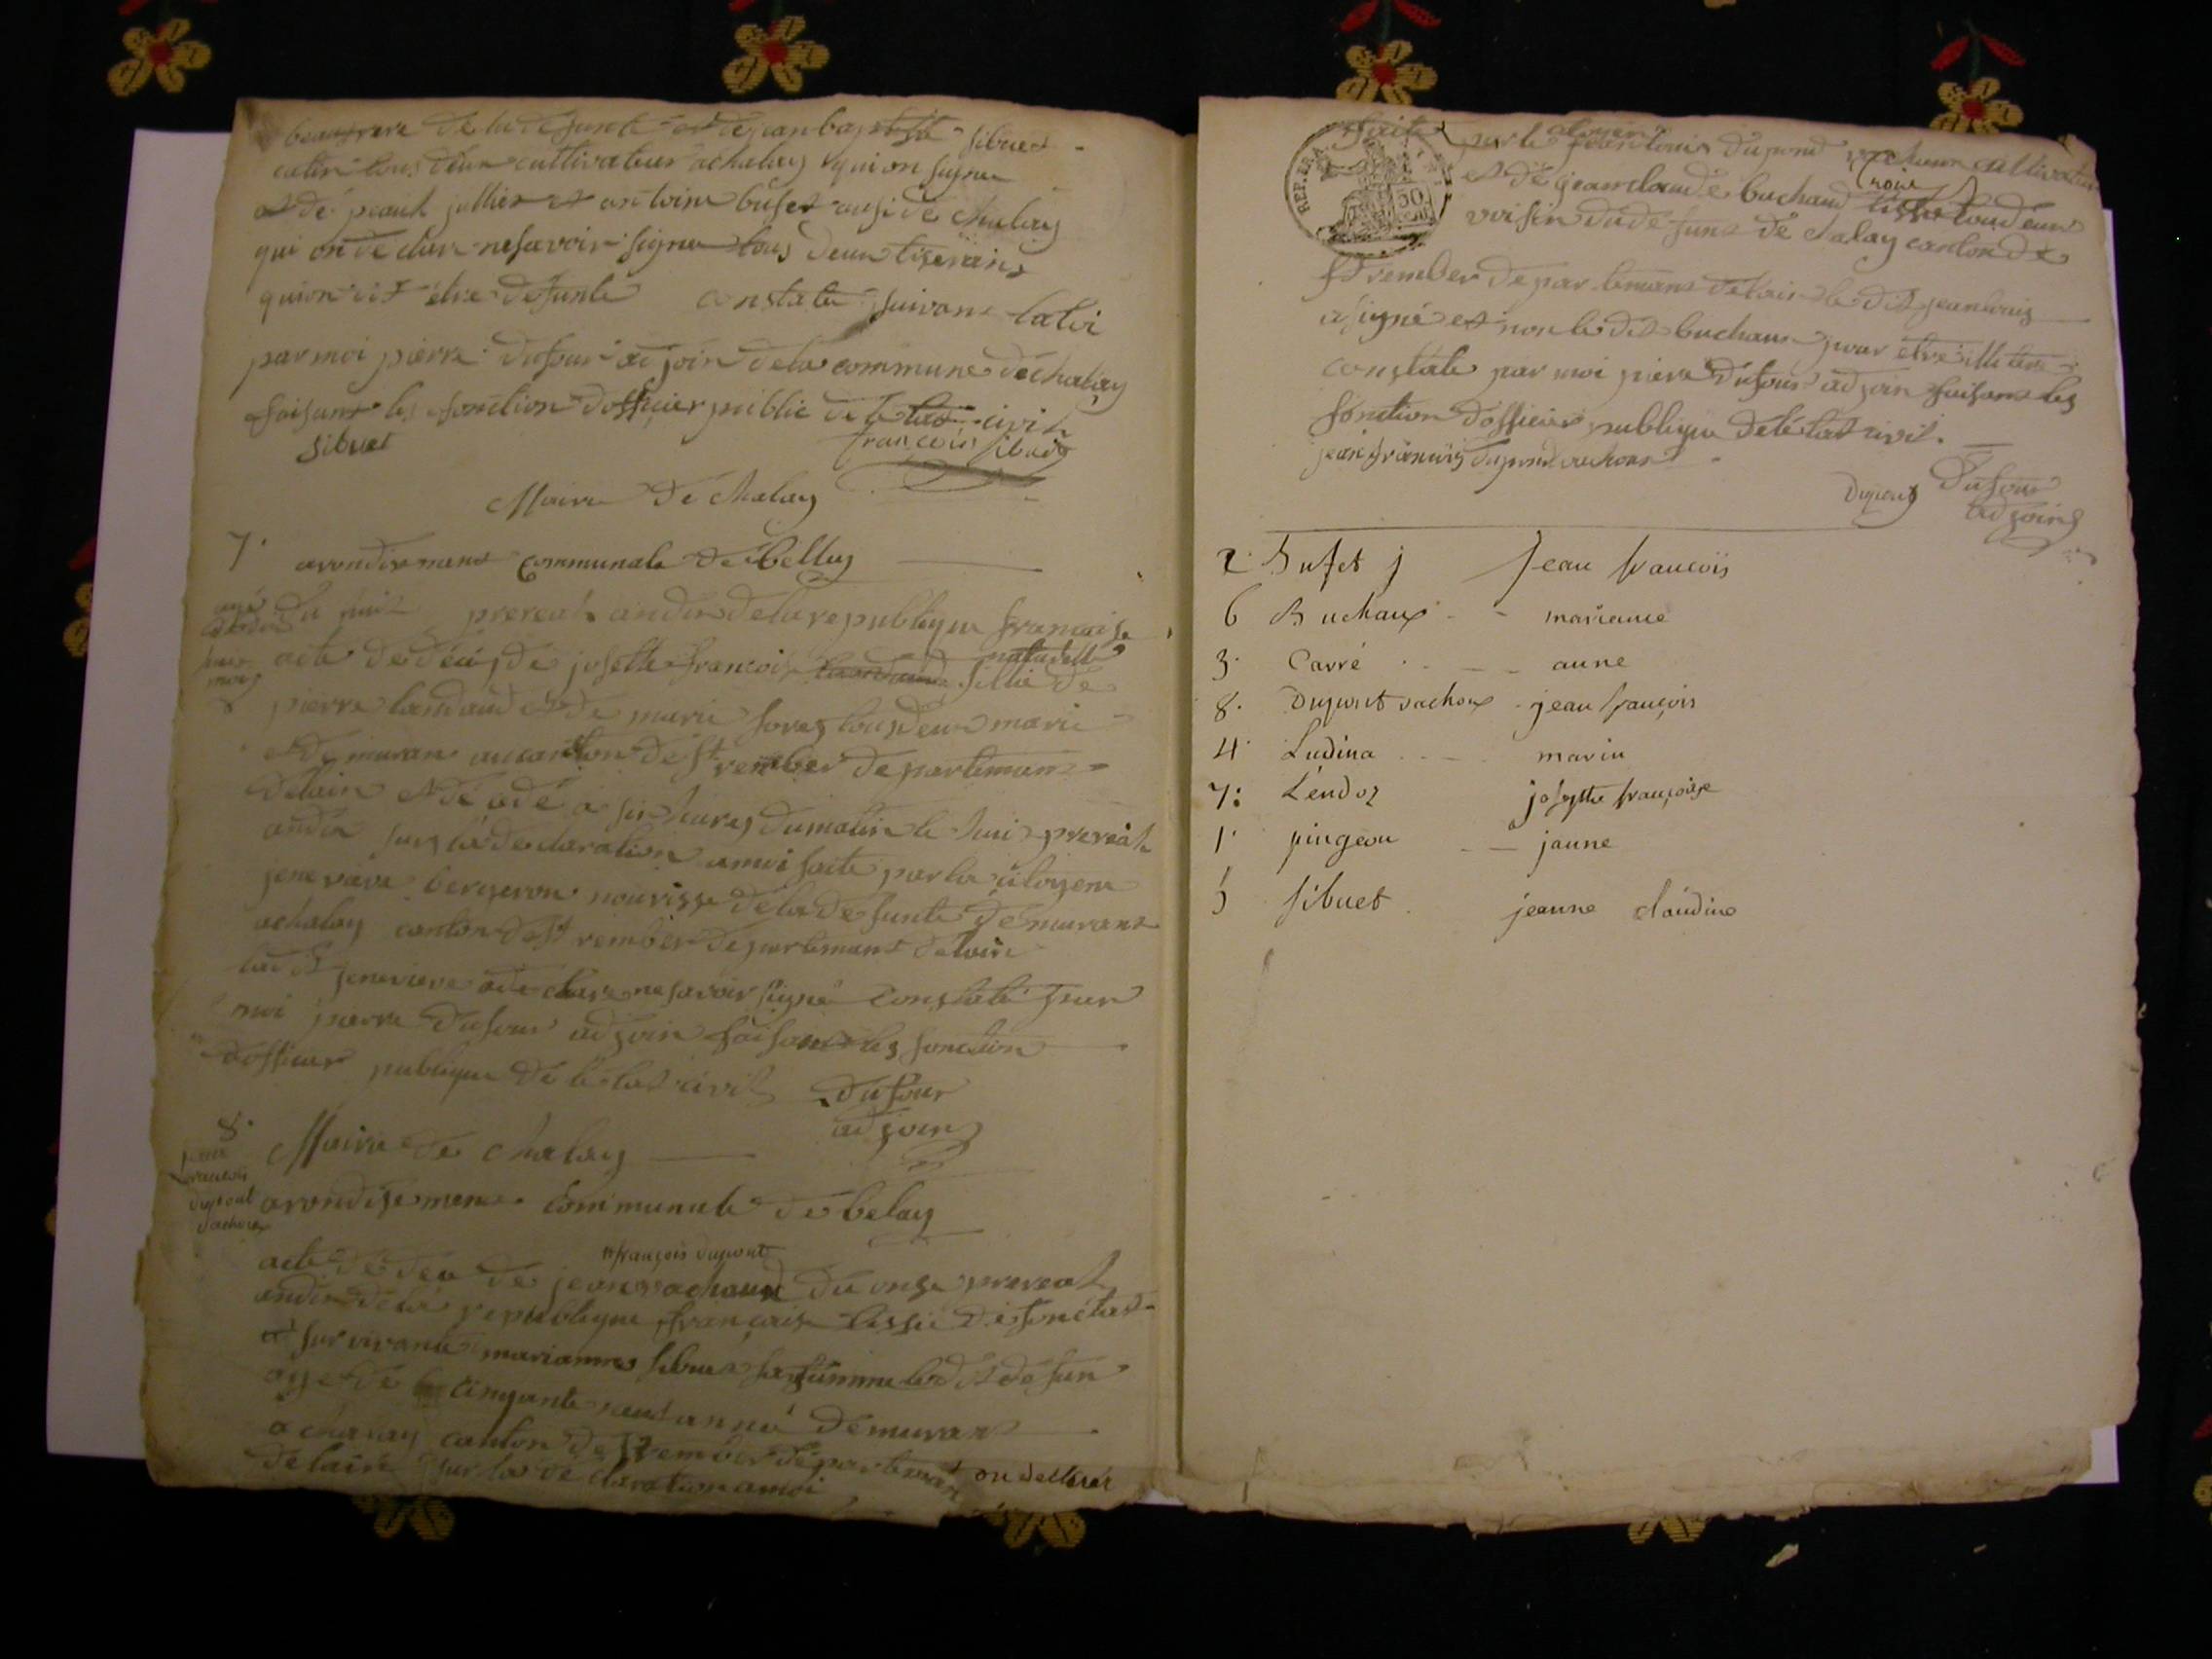 beaufrere de la defunte et de jean baptiste sibuet
catin tous deux cultivateur a chaley qui on signer
et de paul jullier et antoine bufet ausi de chaley
qui on declare ne savoir signer tous deux tiserans
qui on dit être defunte constaté suivant la loi
par moi pierre dufour adjoin de la commune de chaley
faisant les fonction d'officier public de le tat civil
sibuet françois sibuet
Mairie de chaley
7. arondisemens communale de belley
du huit prereal andix de la republique francaise
acte de décés de josette françois naturelle fillie de
pierre landaud et de marie tous deux marié
et demurant au canton de st rember departemans
delain et décédé a six heures du matin le huit prereal
andix sur la declaration a moi faite par la citoyene
jenevieve bergeron nourisse de la defunte demurant
a chaley canton de st rember departemant de lain
ladit jenevieve a declare ne savoir signé constaté par
moi pierre dufour adjoin faisant les fonction
d'officier publique de le tat civil dufour
adjoin
8. Mairie de chaley
jean
francois
dupont
vachoux
arondisemens communale de belay
françois dupont
acte de déce de jean vachoux du onze prereal
andix de la republique français
et survivante marianne sibuet sa fammele dit defun
age de cinquante neuf anné demurant
a chaley canton de st rember departeman
de lain sur la declaration a moi on declarer
REP. FRA. 50
faite par le citoyen jean louis dupond vachoux cultivateur
et de jean claude buchaud tous deux
voisin du defunt de chalay canton de
st rember departemans delain le dit jean louis
a signé et non le dit buchaux pour etre illiteré
constaté par moi piere dufour adjoin faisant les
fonction d'officier publique de létat civil.
jean françois dupond vachoux
dupont dufour
adjoin
2 Bufet j Jean françois
6 Buchaux marianne
3. Carré anne
8. Dupont vachoux jean françois
4 Ludina marie
7: Lendoz josephte françoise
1. pingeon jeanne
5 sibuet jeanne claudine